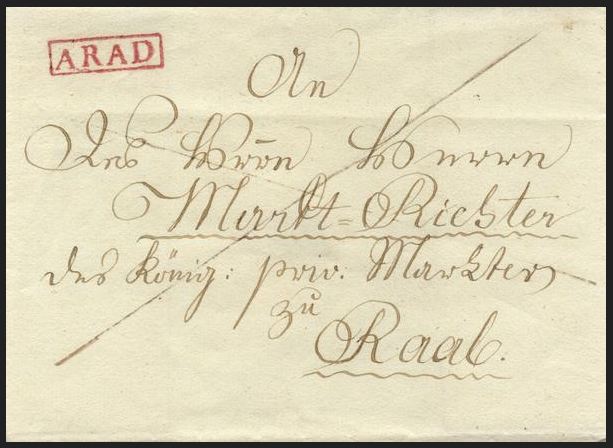 ARAD
An
Des Hrrn Herrn
Markt=Richter
des König: priv: Markters
zu
Raab.